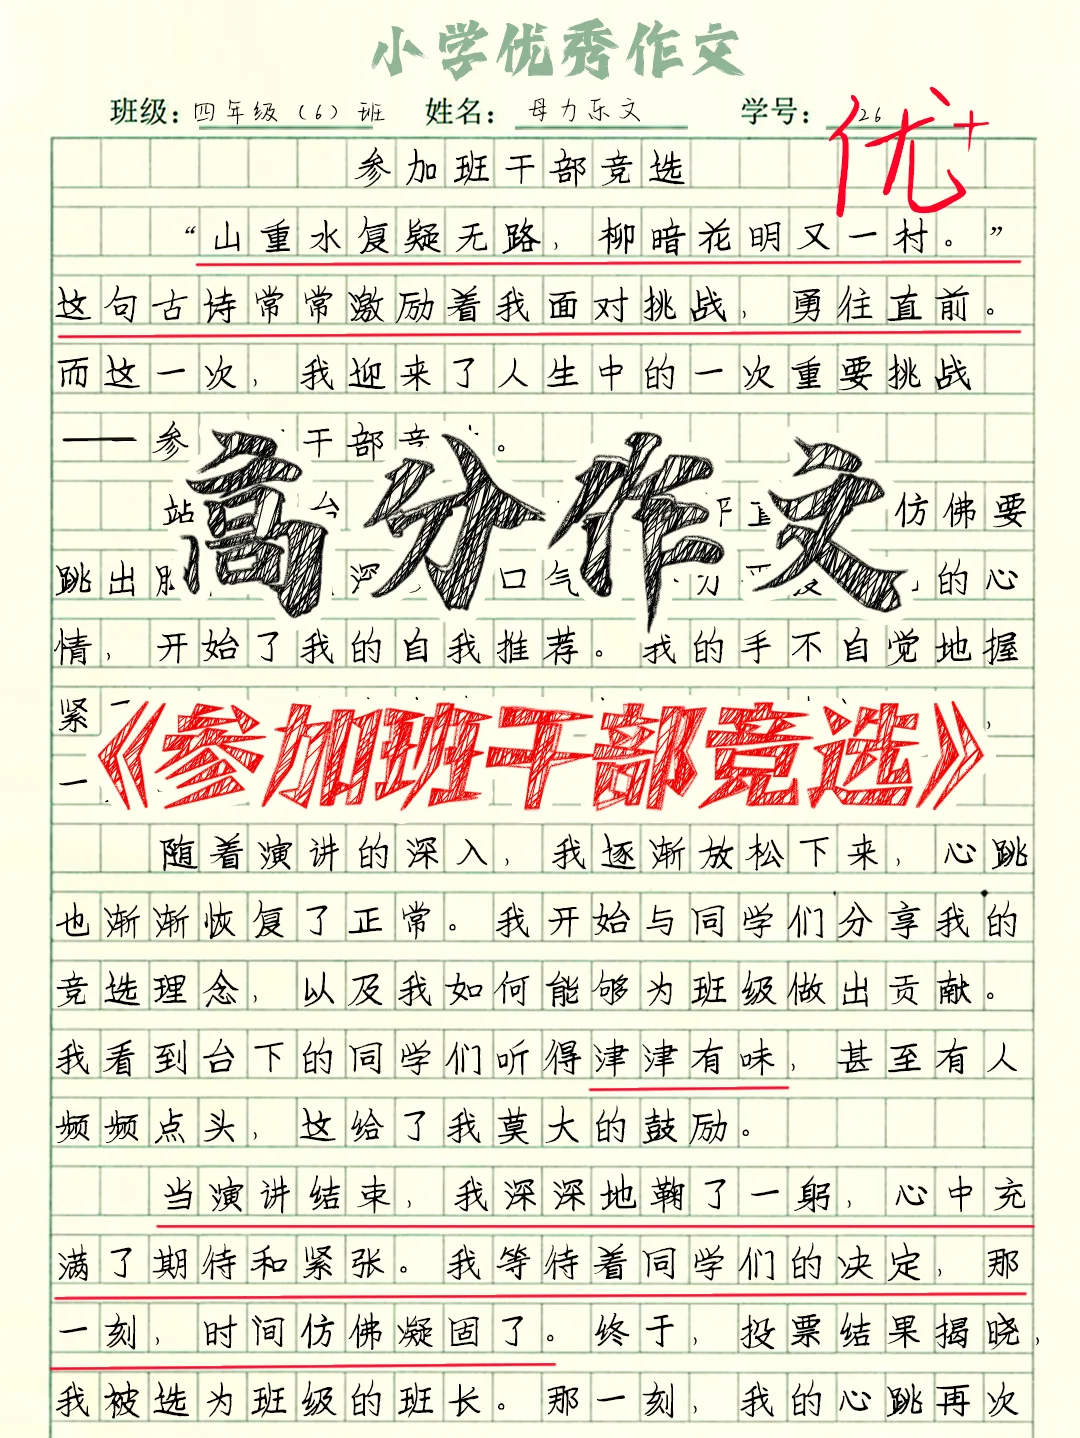 小学优秀作文
班级：四年级（6）班 姓名：母力乐文 学号：26
优+
参加班干部竞选
“山重水复疑无路，柳暗花明又一村。”
这句古诗常常激励着我面对挑战，勇往直前。
而这一次，我迎来了人生中的一次重要挑战
——参 干部竞 。
高分作文
站 台 仿佛要
跳出 深 口气 的心
情，开始了我的自我推荐。我的手不自觉地握
紧
《参加班干部竞选》
一
随着演讲的深入，我逐渐放松下来，心跳
也渐渐恢复了正常。我开始与同学们分享我的
竞选理念，以及我如何能够为班级做出贡献。
我看到台下的同学们听得津津有味，甚至有人
频频点头，这给了我莫大的鼓励。
当演讲结束，我深深地鞠了一躬，心中充
满了期待和紧张。我等待着同学们的决定，那
一刻，时间仿佛凝固了。终于，投票结果揭晓，
我被选为班级的班长。那一刻，我的心跳再次